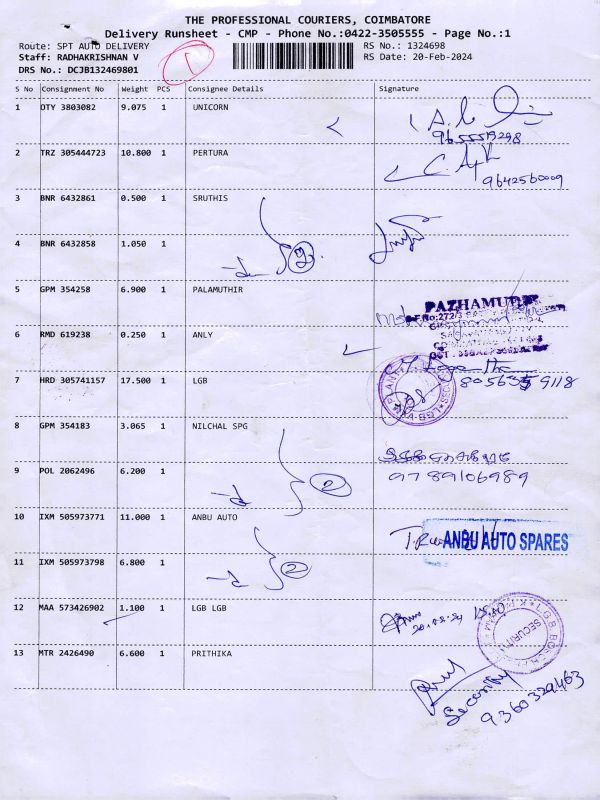 THE PROFESSIONAL COURIERS, COIMBATORE
Delivery Runsheet - CMP - Phone No.:0422-3505555 - Page No.:1
Route: SPT AUTO DELIVERY
RS No.: 1324698
Staff: RADHAKRISHNAN V
RS Date: 20-Feb-2024
DRS No.: DCJB132469801
1
S No Consignment No Weight PCS Consignee Details Signature
1 DTY 3803082 9.075 1 UNICORN
9655579298
2 TRZ 305444723 10.800 1 PERTURA
9642560009
3 BNR 6432861 0.500 1 SRUTHIS
4 BNR 6432858 1.050 1
5 GPM 354258 6.900 1 PALAMUTHIR
PAZHAMUDIR
6 RMD 619238 0.250 1 ANLY
7 HRD 305741157 17.500 1 LGB
8056359118
8 GPM 354183 3.065 1 NILCHAL SPG
9 POL 2062496 6.200 1
2
9789106989
10 IXM 505973771 11.000 1 ANBU AUTO
ANBU AUTO SPARES
11 IXM 505973798 6.800 1
2
12 MAA 573426902 1.100 1 LGB LGB
SECURITY
13 MTR 2426490 6.600 1 PRITHIKA
Security
9360329463